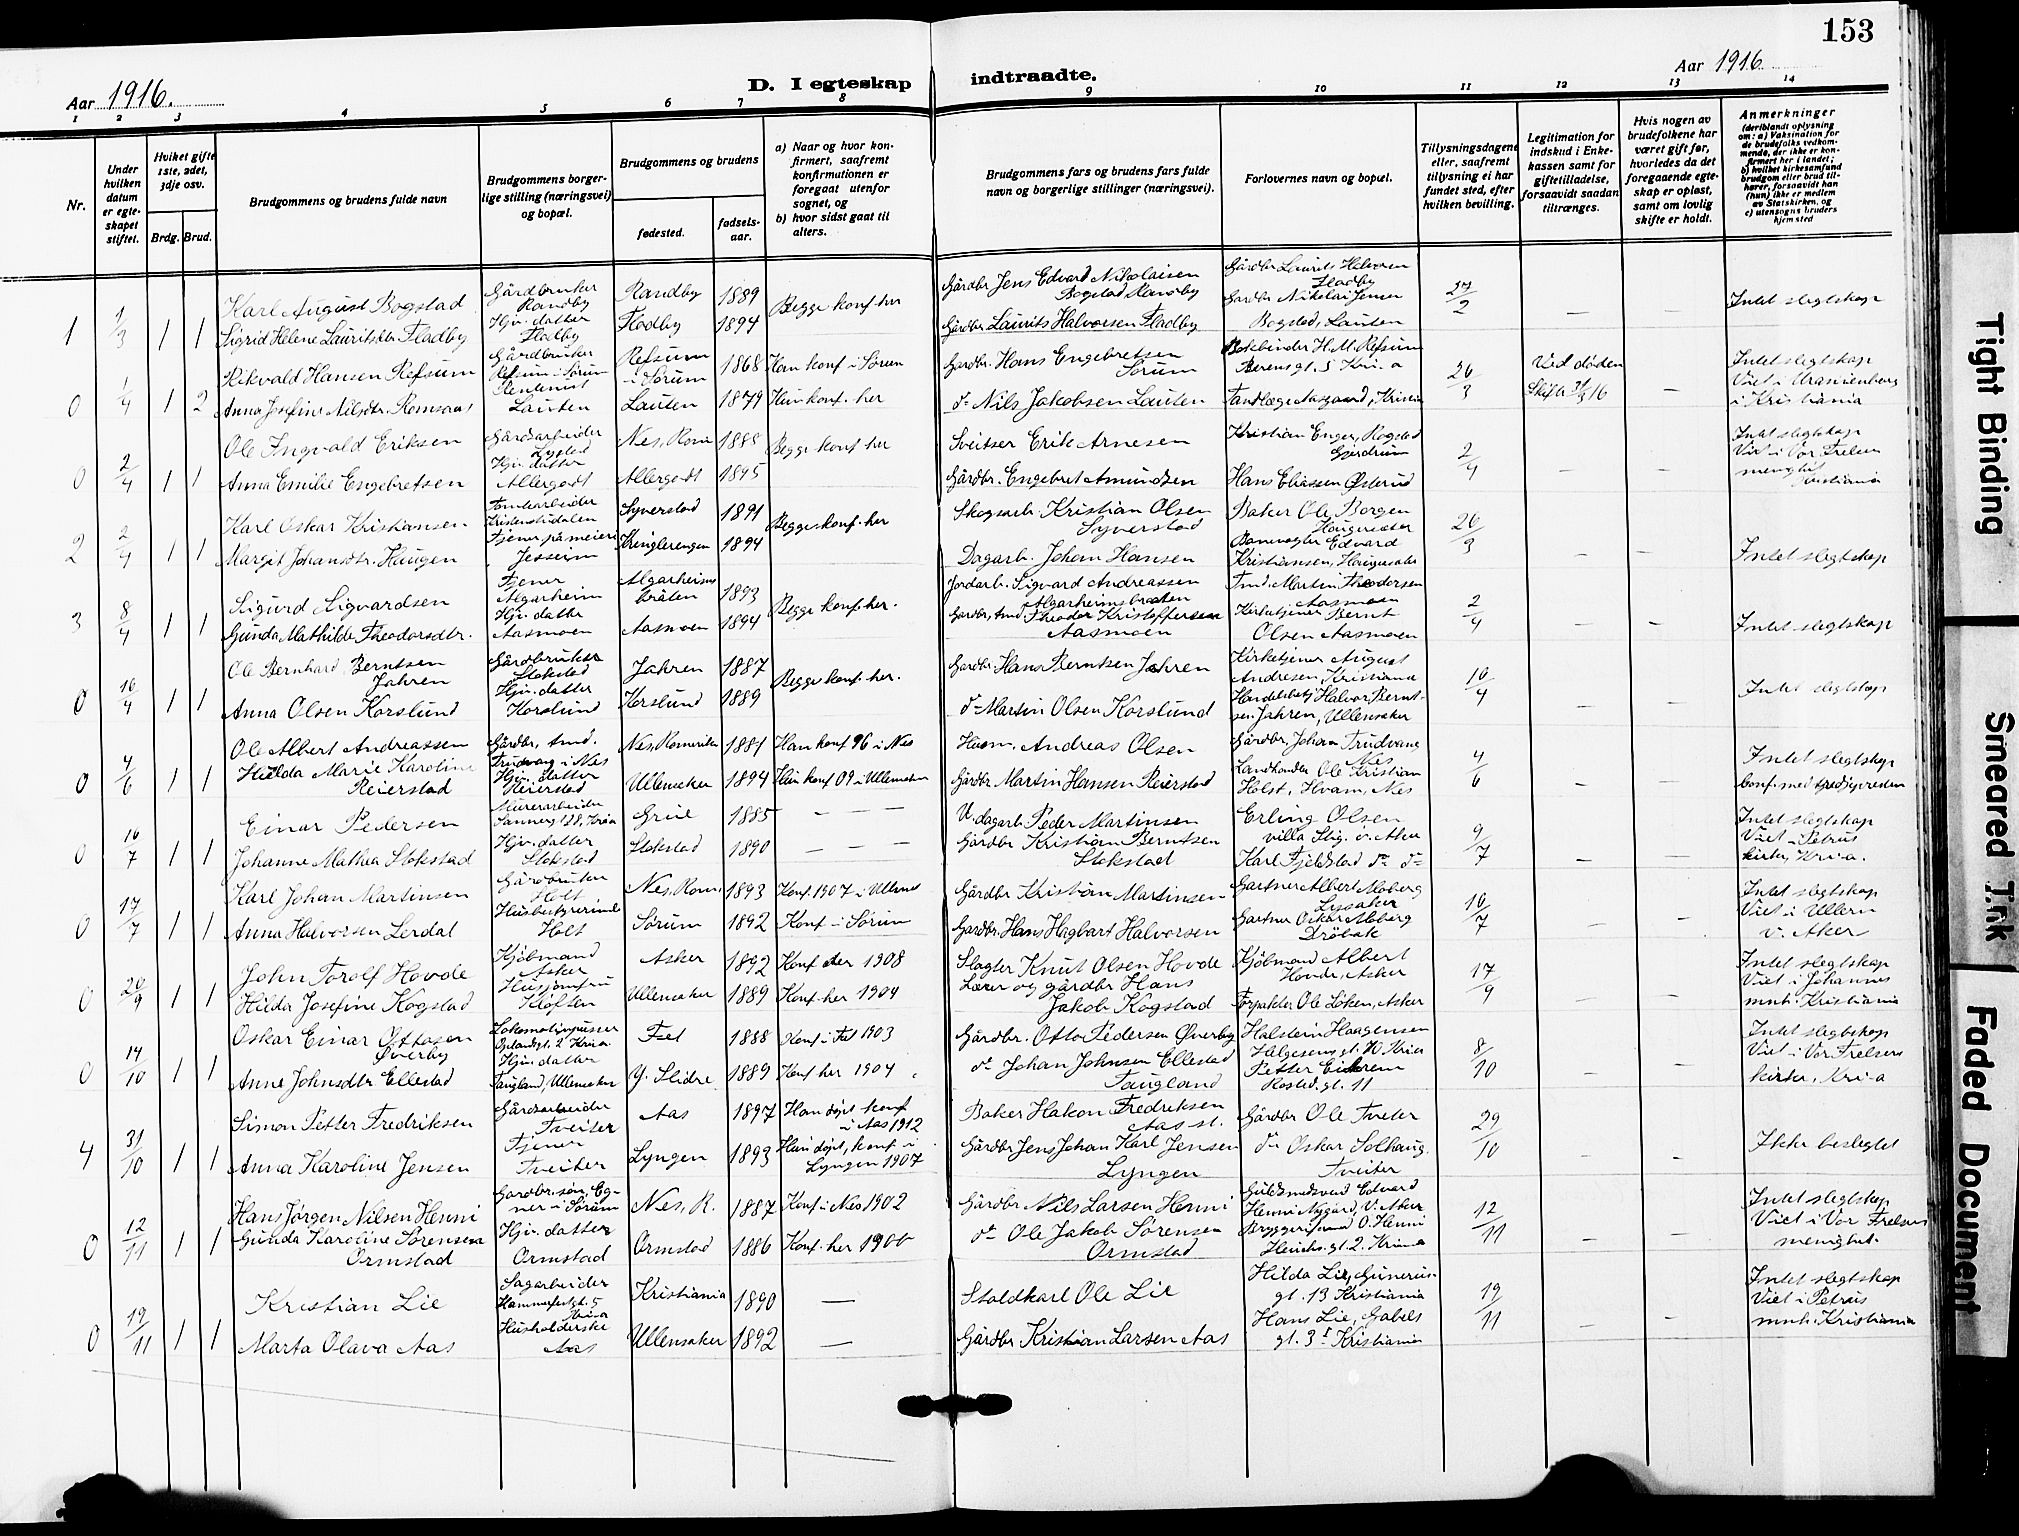 153
Aar 1916.
D. I egteskap indtraadte.
Aar 1916
1 2 3 4 5 6 7 8 9 10 11 12 13 14
Nr.
Under hvilken datum er egteskapet stiftet.
Hviket gifte 1ste, 2det, 3dje osv.
Brdg. Brud.
Brudgommens og brudens fulde navn
Brudgommens borgerlige stilling (næringsvei) og bopæl.
Brudgommens og brudens
fødested.
fødselsaar.
a) Naar og hvor konfirmert, saafremt konfirmationen er foregaat utenfor sognet, og
b) hvor sidst gaat til alters.
Brudgommens fars og brudens fars fulde navn og borgerlige stillinger (næringsvei).
Forlovernes navn og bopæl.
Tillysningsdagene eller, saafremt tillysning ei har fundet sted, efter hvilken bevilling.
Legitimation for indskud i Enkekassen samt for giftetilladelse, forsaavidt saadan tiltrænges.
Hvis nogen av brudefolkene har været gift før, hvorledes da det foregaaende egteskap er opløst, samt om lovlig skifte er holdt.
Anmerkninger (deriblandt oplysning om: a) Vaksination for de brudefolks vedkommende, der ikke er konfirmert her i landet; b) hvilket kirkesamfund brudgom eller brud tilhører, forsaavidt han (hun) ikke er medlem av Statskirken, og c) utensogns bruders hjemsted
1 1/3 1 1
Karl August Bogstad Gårdbruker Randby Randby 1889 Begge konf. her Gårdbr Jens Edvard Nikolaisen Bogstad Randby Gårdbr Laurits Halvorsen Fladby 27/2 Intet slegtskap
Sigrid Helene Lauritsdtr Fladby Hjv. datter Fladby Fladby 1894 Gårdbr. Laurits Halvorsen Fladby Gardbr Nikolai Jensen Bogstad, Lauten
0 1/4 1 2
Rikvald Hansen Refsum Gårdbruker Refsum i Sørum Refsum i Sørum 1868 Han konf. i Sørum Gardbr. Hans Engebretsen Sørum Bokbinder H. M. Refsum Berensgt. 5 Kri.a 26/3 Ved døden Intet slegtskap Viet i Uranienborg i Kristiania
Anna Josefine Nilsdtr. Romsaas Rentenist Lauten Lauten 1879 Hun konf. her do Nils Jakobsen Lauten Tandlæge Aasgaard, Kristia
0 2/4 1 1
Ole Ingvald Eriksen Gårdsarbeider Nes, Rom 1888 Begge konf. her Sveitser Erik Arnesen Kristian Enger, Rogstad Gjerdrum 2/4 Intet slegtskap Viet i Vor Frelsers menighet Kristiania
Anna Emilie Engebretsen Hjv. datter Allergodt Allergodt 1895 Gårdbr. Engebret Amundsen Hans Eliassen Østerud
2 2/4 1 1
Karl Oskar Kristiansen Syverstad 1891 Begge konf. her Skogsarb. Kristian Olsen Syverstad Baker Ole Borgen Haugerseter 26/3 Intet slegtskap
Margit Johansdtr. Haugen Tjener på meieri Jesseim Kringlerengen 1894 Dagarb. Johan Hansen Banevogter Edvard Kristiansen, Haugerseter
3 8/4 1 1
Sigurd Sigvardsen Tjener Algarheim Algarheims bråten 1893 Begge konf. her. Jordarb. Sigvard Andreassen Algarheimsbraaten Smd. Martin Theodorsen Aasmoen 2/4 Intet slegtskap
Gunda Mathilde Theodorsdtr. Hjv. datter Aasmoen Aasmoen 1894 Gardbr., smd Theodor Kristoffersen Aasmoen Kirketjener Bernt Olsen Aasmoen
0 16/4 1 1
Ole Bernhard Berntsen Jahren Gårdbruker Stokstad Jahren 1887 Begge konf. her. Gardbr. Hans Berntsen Jahren Kirketjener August Andresen, Kristiania 10/4 Intet slegtskap
Anna Olsen Korslund Hjv. datter Korslund Korslund 1889 do Martin Olsen Korslund Handelsbetj. Halvor Berntsen Jahren, Ullensaker
0 4/6 1 1
Ole Albert Andreassen Gårdbr, smd. Trudvang i Nes Nes, Romerike 1881 Han konf 96 i Nes Husm. Andreas Olsen Gårdbr. Johan Trudvang Nes 4/6 Intet slegtskap
Hilda Marie Karoline Reierstad Hjv. datter Reierstad Ullensaker 1894 Hun konf 09 i Ullensaker Gårdbr Martin Hansen Reierstad Landhandler Ole Kristian Holst, Hvam, Nes
0 16/7 1 1
Einar Pedersen Murerarbeider Sannerg 18B, Kria Grue 1885 V. dagarb. Peder Martinsen Erling Olsen villa Stig. v. Aker 9/7 Intet slegtskap Viet i Petrus kirke, Kri-a.
Johanne Mathea Stokstad Hjv. datter Stokstad Stokstad 1890 Gårdbr Kristian Berntsen Stokstad Karl Fjeldstad do do
0 17/7 1 1
Karl Johan Martinsen Gårdbruker Holt Nes, Rom. 1893 Konf. 1907 i Ullensak Gårdbr Kristian Martinsen Gartner Albert Moberg Lysaker 10/7 Intet slegtskap Viet i Ullern v. Aker
Anna Halvorsen Lerdal Husbestyrerinde Holt Sørum 1892 Konf. i Sørum Gårdbr. Hans Hagbart Halvorsen Gartner Oskar Moberg Drøbak
0 20/9 1 1
John Torolf Hovde Kjøbmand Asker Asker 1892 Konf. der 1908 Slagter Knut Olsen Hovde Kjøbmand Albert Hovde, Asker 17/9 Intet slegtskap Viet i Johannes mnh. Kristiania
Hilda Josefine Kogstad Husjomfru Kløften Ullensaker 1889 Konf. her 1904 Lærer og gårdbr Hans Jakob Kogstad Forpakter Ole Løken, Asker
0 14/10 1 1
Oskar Einar Ottosen Øverby Lokomotivpusser Oplandsgt. 2 Kria Fet 1888 Konf. i Fet 1903 Gårdbr. Otto Pedersen Øverby Halstein Haagensen Helgesens gt. 70 Kria 8/10 Intet slegtskap Viet i Vor Frelsers kirke, Kri-a
Anne Johnsdtr Ellestad Hjv. datter Taugland, Ullensaker V. Slidre 1889 Konf. her 1904 do Johan Johnsen Ellestad Taugland Petter Eidem Rosted. gt. 11
4 31/10 1 1
Simon Petter Fredriksen Gårdsarbeider Tveiter Aas 1897 Han døpt, konf. i Aas 1912 Baker Hakon Fredriksen Aas st. Gårdbr Ole Tveter 29/10 Ikke beslegtet
Anna Karoline Jensen Tjener Tveiter Lyngen 1893 Hun døpt, konf. i Lyngen 1907 Gårdbr Jens Johan Karl Jensen Lyngen do Oskar Solhaug Tveiter
0 12/11 1 1
Hans Jørgen Nilsen Henni Gardbr. søn, Egner i Sørum Nes, R. 1887 Konf. i Nes 1902 Gårdbr Nils Larsen Henni Guldsmedsvend Edvard Henni Nygård, V. Aker 12/11 Intet slegtskap Viet i Vor Frelsers menighet.
Gunda Karoline Sørensen Ormstad Hjv. datter Ormstad Ormstad 1886 Konf. her 1900 do Ole Jakob Sørensen Ormstad Bryggerimand O. Henni gt. 2. Kristia
0 19/11 1 1
Kristian Lie Sagarbeider Hammerfestgt. 5 Kria Kristiania 1890 Staldkarl Ole Lie Hilda Lie, Gunerusgt. 13 Kristiania 19/11 Intet slegtskap Viet i Petrus mnh. Kristiania
Marta Olava Aas Husholderske Aas Ullensaker 1892 Gårdbr. Kristian Larsen Aas Hans Lie, Gabels gt. 3 Kristiania
Tight Binding
Smeared Ink
Faded Document